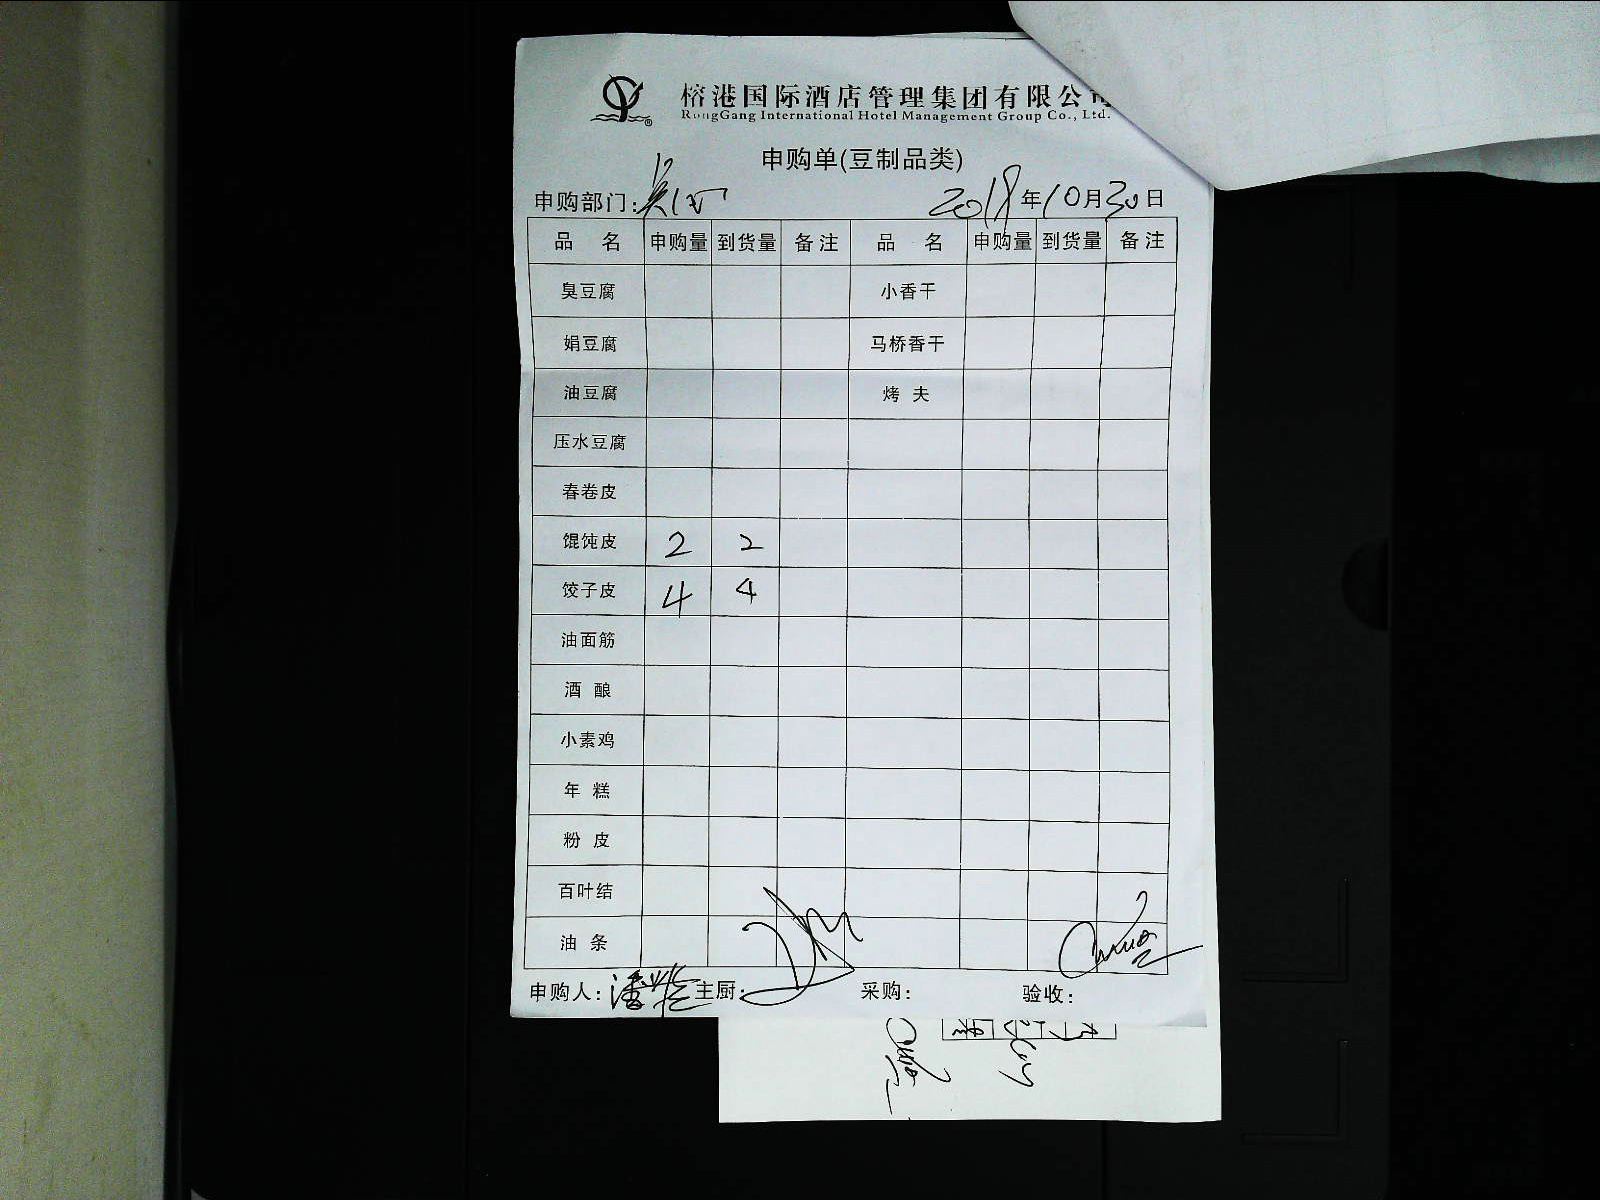 榕港国际酒店管理集团有限公司
RongGang International Hotel Management Group Co., Ltd.
申购单(豆制品类)
申购部门: 2018年10月30日
品 名 申购量 到货量 备注 品 名 申购量 到货量 备注
臭豆腐 小香干
娟豆腐 马桥香干
油豆腐 烤 夫
压水豆腐
春卷皮
馄饨皮 2 2
饺子皮 4 4
油面筋
酒 酿
小素鸡
年 糕
粉 皮
百叶结
油 条
申购人: 潘 主厨: 采购: 验收: